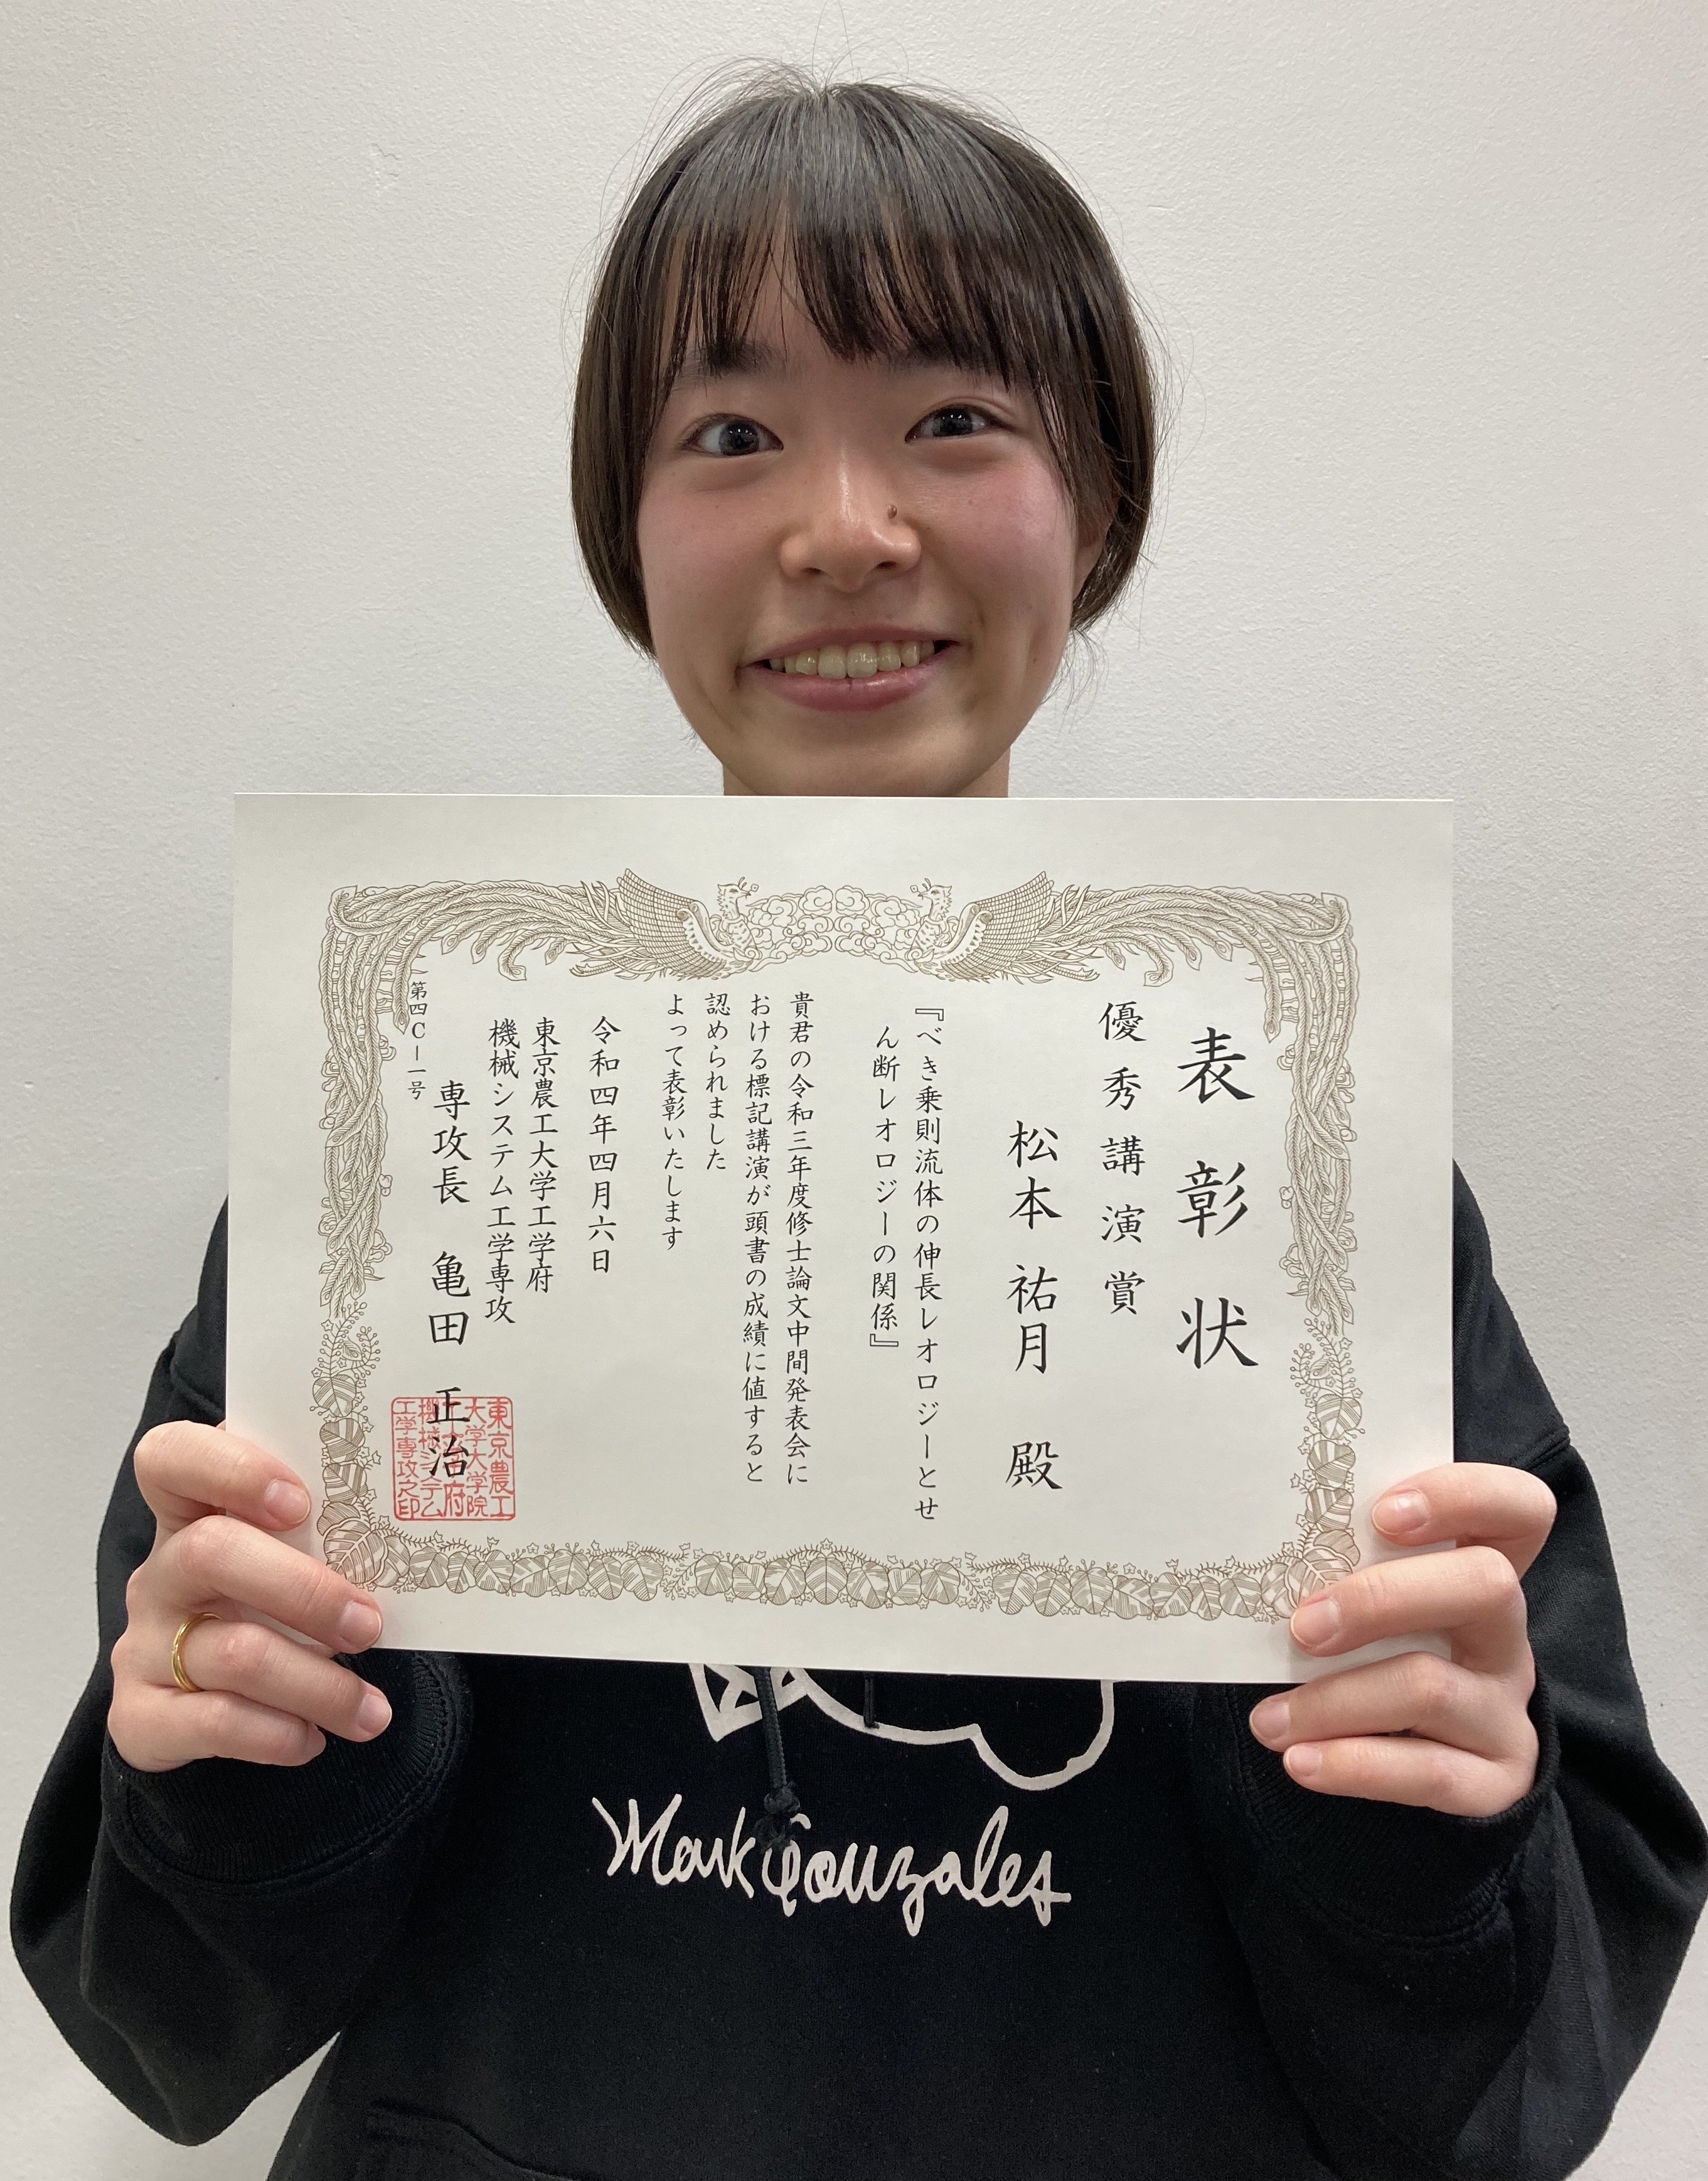 表彰状
優秀講演賞
松本 祐月 殿
『べき乗則流体の伸長レオロジーとせ
ん断レオロジーの関係』
貴君の令和三年度修士論文中間発表会に
おける標記講演が頭書の成績に値すると
認められました
よって表彰いたします
令和四年四月六日
東京農工大学工学府
機械システム工学専攻
専攻長 亀田 正治
第四C-一号
東京農工
大学大学院
工学府
機械システム
工学専攻之印
Mark Gonzales